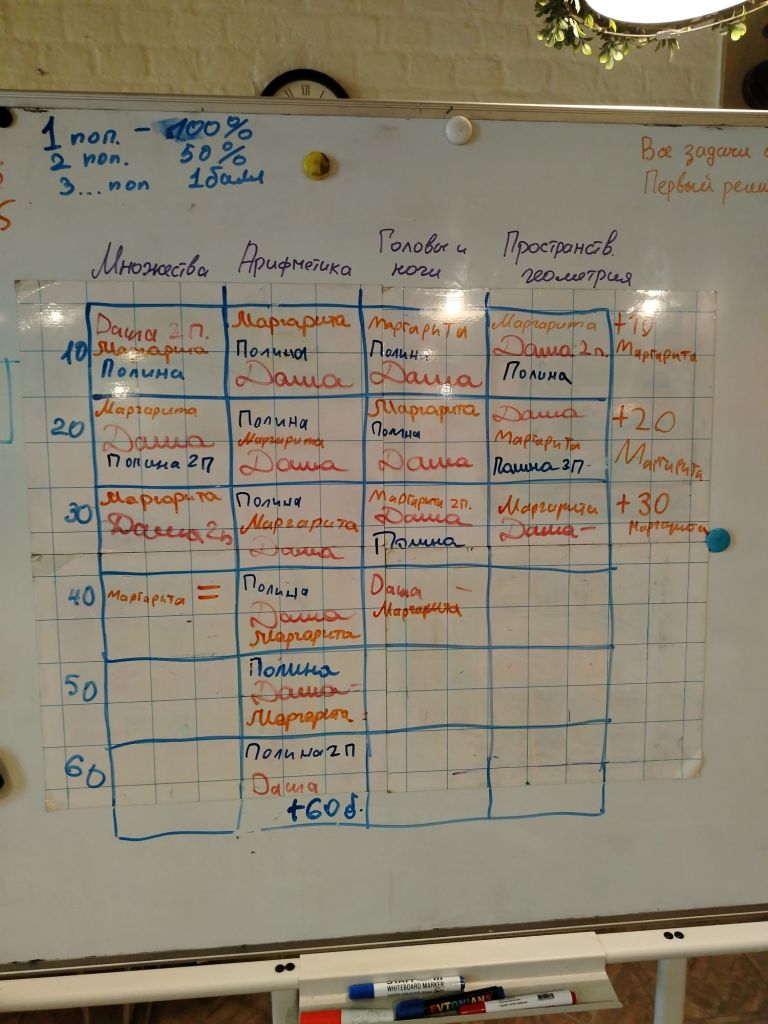 1 поп. - 100%
2 поп. 50%
3...поп 1балл
Все задачи
Первый
Множества Арифметика Головы и ноги Пространств. геометрия
10
Даша 2 п.
Маргарита
Полина
Маргарита
Полина
Даша
Маргарита
Полин
Даша
Маргарита
Даша 2 п.
Полина
+10
Маргарита
20
Маргарита
Даша
Полина 2П
Полина
Маргарита
Даша
Маргарита
Полина
Даша
Даша
Маргарита
Полина 3П.
+20
Маргарита
30
Маргарита
Даша 2п
Полина
Маргарита
Даша
Маргарита 2п.
Даша
Полина
Маргарита
Даша -
+30
Маргарита
40
Маргарита =
Полина
Даша
Маргарита
Даша -
Маргарита
50
Полина
Даша -
Маргарита
60
Полина 2П
Даша
+60 б.
WHITEBOARD MARKER